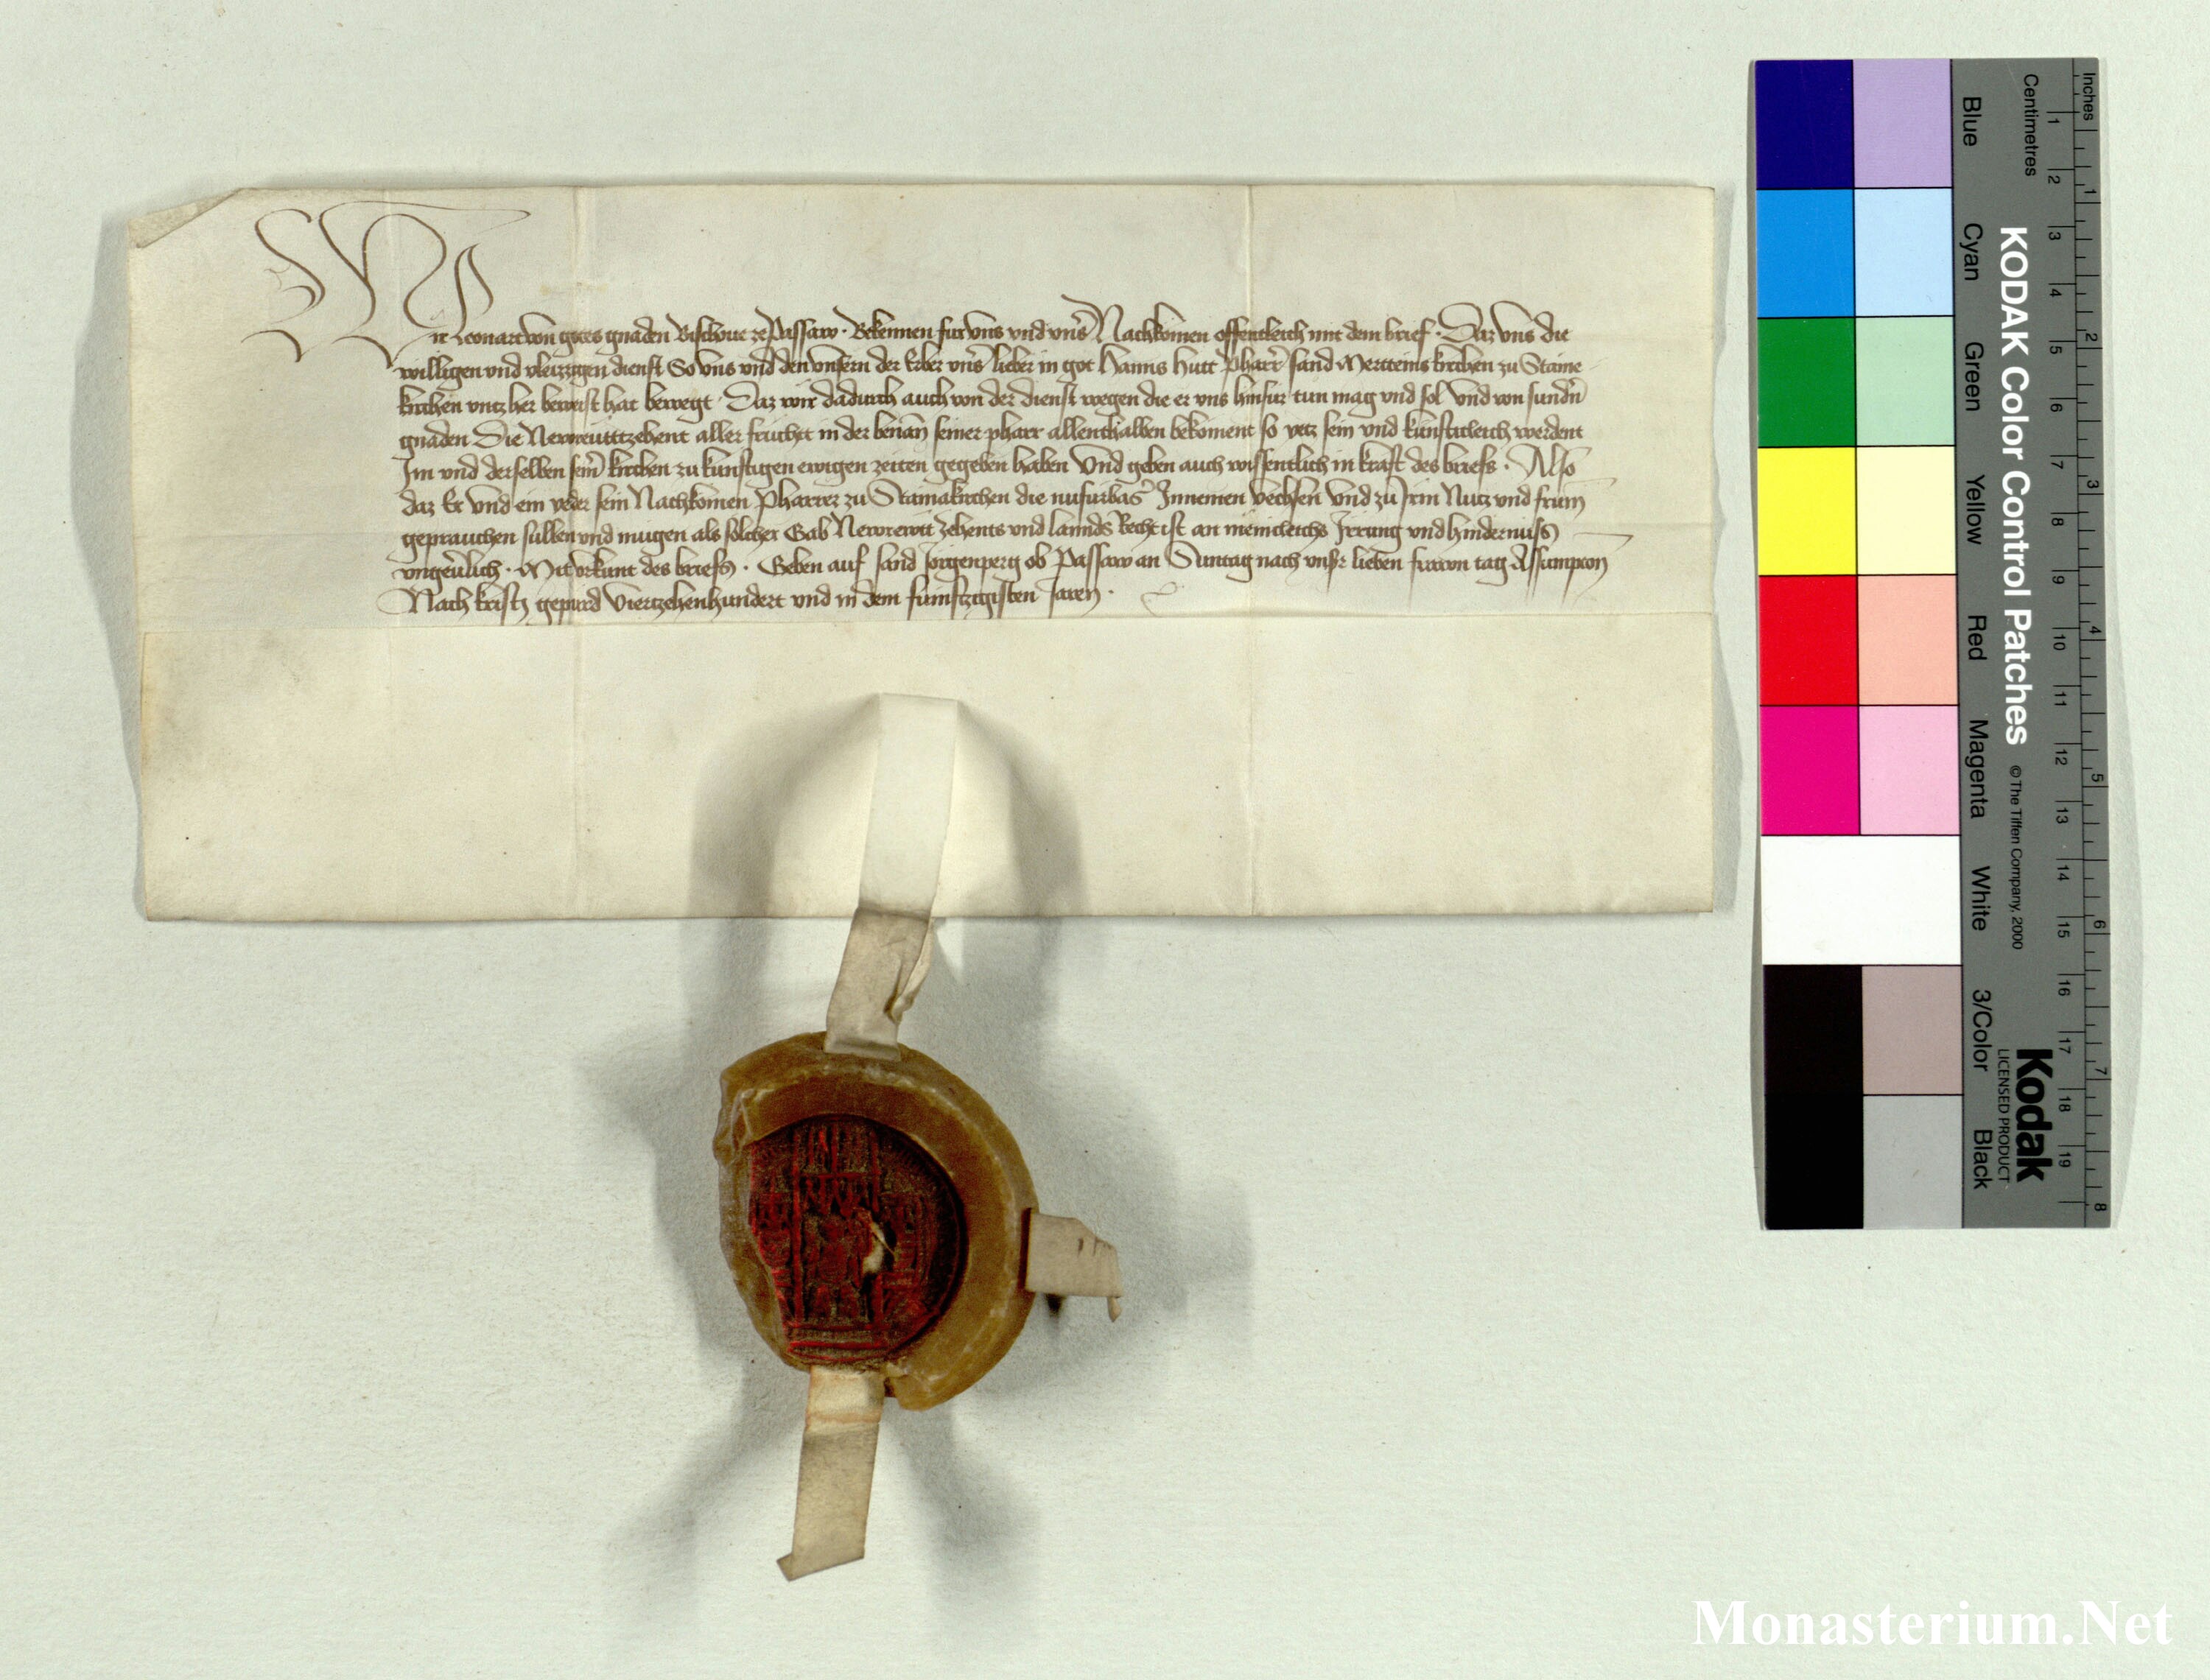 Wir Leonart von gotes gnaden Bischoue ze Passaw · Bekennen fur vns vnd vnser Nachkomen offentleich mit dem brief · Daz vns die
willigen vnd vleizzigen dienst So vns vnd den vnsern der Erber vnser lieber in got Hanns Hutt Pharrer sand Merteins kirchen zu Staine
kirchen vntz her beweist hat bewegt · Daz wir dadurch auch von der dienst wegen die er vns hinfur tun mag vnd sol Vnd von sundern
gnaden Die Newreuttzehent aller frucht in der benanten seiner pharr allenthalben bekoment so yetz sein vnd kunfticleich werdent
Im vnd derselben seiner kirchen zu kunftigen ewigen zeiten gegeben haben Vnd geben auch wissentlich in kraft des briefs · Also
daz Er vnd ein yeder sein Nachkomen Pharrer zu Stainakirchen die nufurbas Innemen Vechsen Vnd zu Irm Nutz vnd frum
geprauchen sullen vnd mugen als solcher Gab Newrewtt Zehents vnd lannds Recht ist an menicleichs Irrung vnd hindernuss
vngeuerlich · Mit vrkunt des briefs · Geben auf sand Jorgenperg ob Passaw an Suntag nach vnser lieben frawn tag Assumpcon
Nach kristi gepurd Viertzehenhundert vnd in dem funftzigisten Jaren ·
KODAK Color Control Patches
© The Tiffen Company, 2000
Kodak
LICENSED PRODUCT
Inches
1 2 3 4 5 6 7 8
Centimetres
1 2 3 4 5 6 7 8 9 10 11 12 13 14 15 16 17 18 19
Blue
Cyan
Green
Yellow
Red
Magenta
White
3/Color
Black
Monasterium.Net